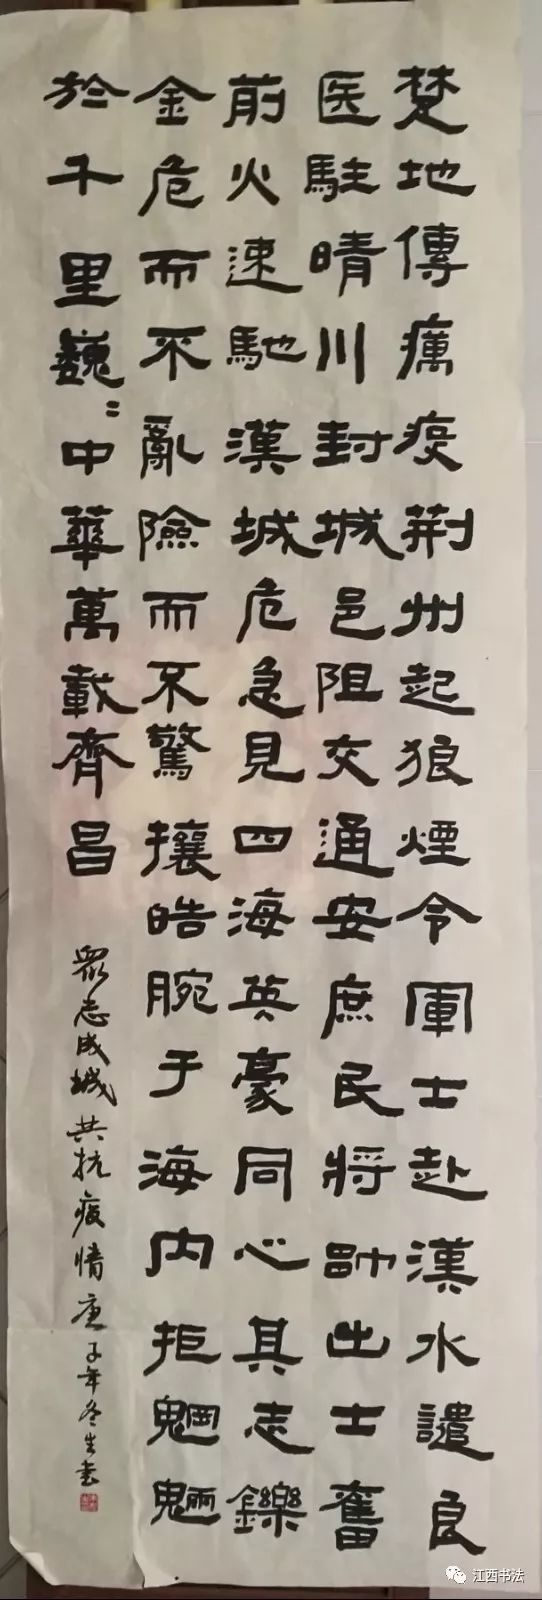 楚地傳癘疫荆州起狼煙令軍士赴漢水譴良
医駐晴川封城邑阻交通安庶民將帥出士奮
前火速馳漢城危急見四海英豪同心其志鑠
金危而不亂險而不驚攘皓腕于海内拒魍魎
於千里巍〻中華萬載齊昌
眾志成城共抗疫情庚子年冬生書
江西书法